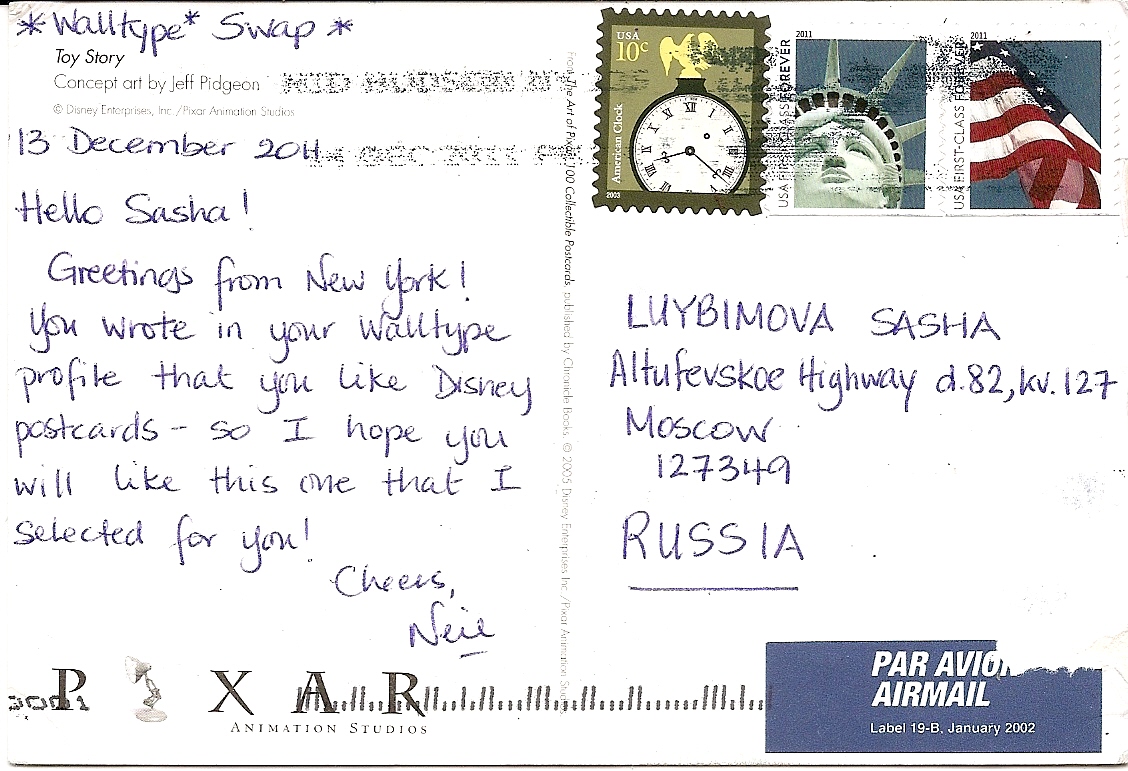 *Walltype* Swap *
Toy Story
Concept art by Jeff Pidgeon
© Disney Enterprises, Inc./Pixar Animation Studios
13 December 2011
Hello Sasha!
Greetings from New York!
You wrote in your Walltype
profile that you like Disney
postcards - so I hope you
will like this one that I
selected for you!
Cheers,
PIXAR
ANIMATION STUDIOS
From The Art of Pixar: 100 Collectible Postcards, published by Chronicle Books. © 2005 Disney Enterprises Inc./Pixar Animation Studios
USA
10c
American Clock
2003
MID HUDSON NY
2011
USA FIRST-CLASS FOREVER
2011
USA FIRST-CLASS FOREVER
LUYBIMOVA SASHA
Altufevskoe Highway d.82, kv.127
Moscow
127349
RUSSIA
PAR AVION
AIRMAIL
Label 19-B, January 2002